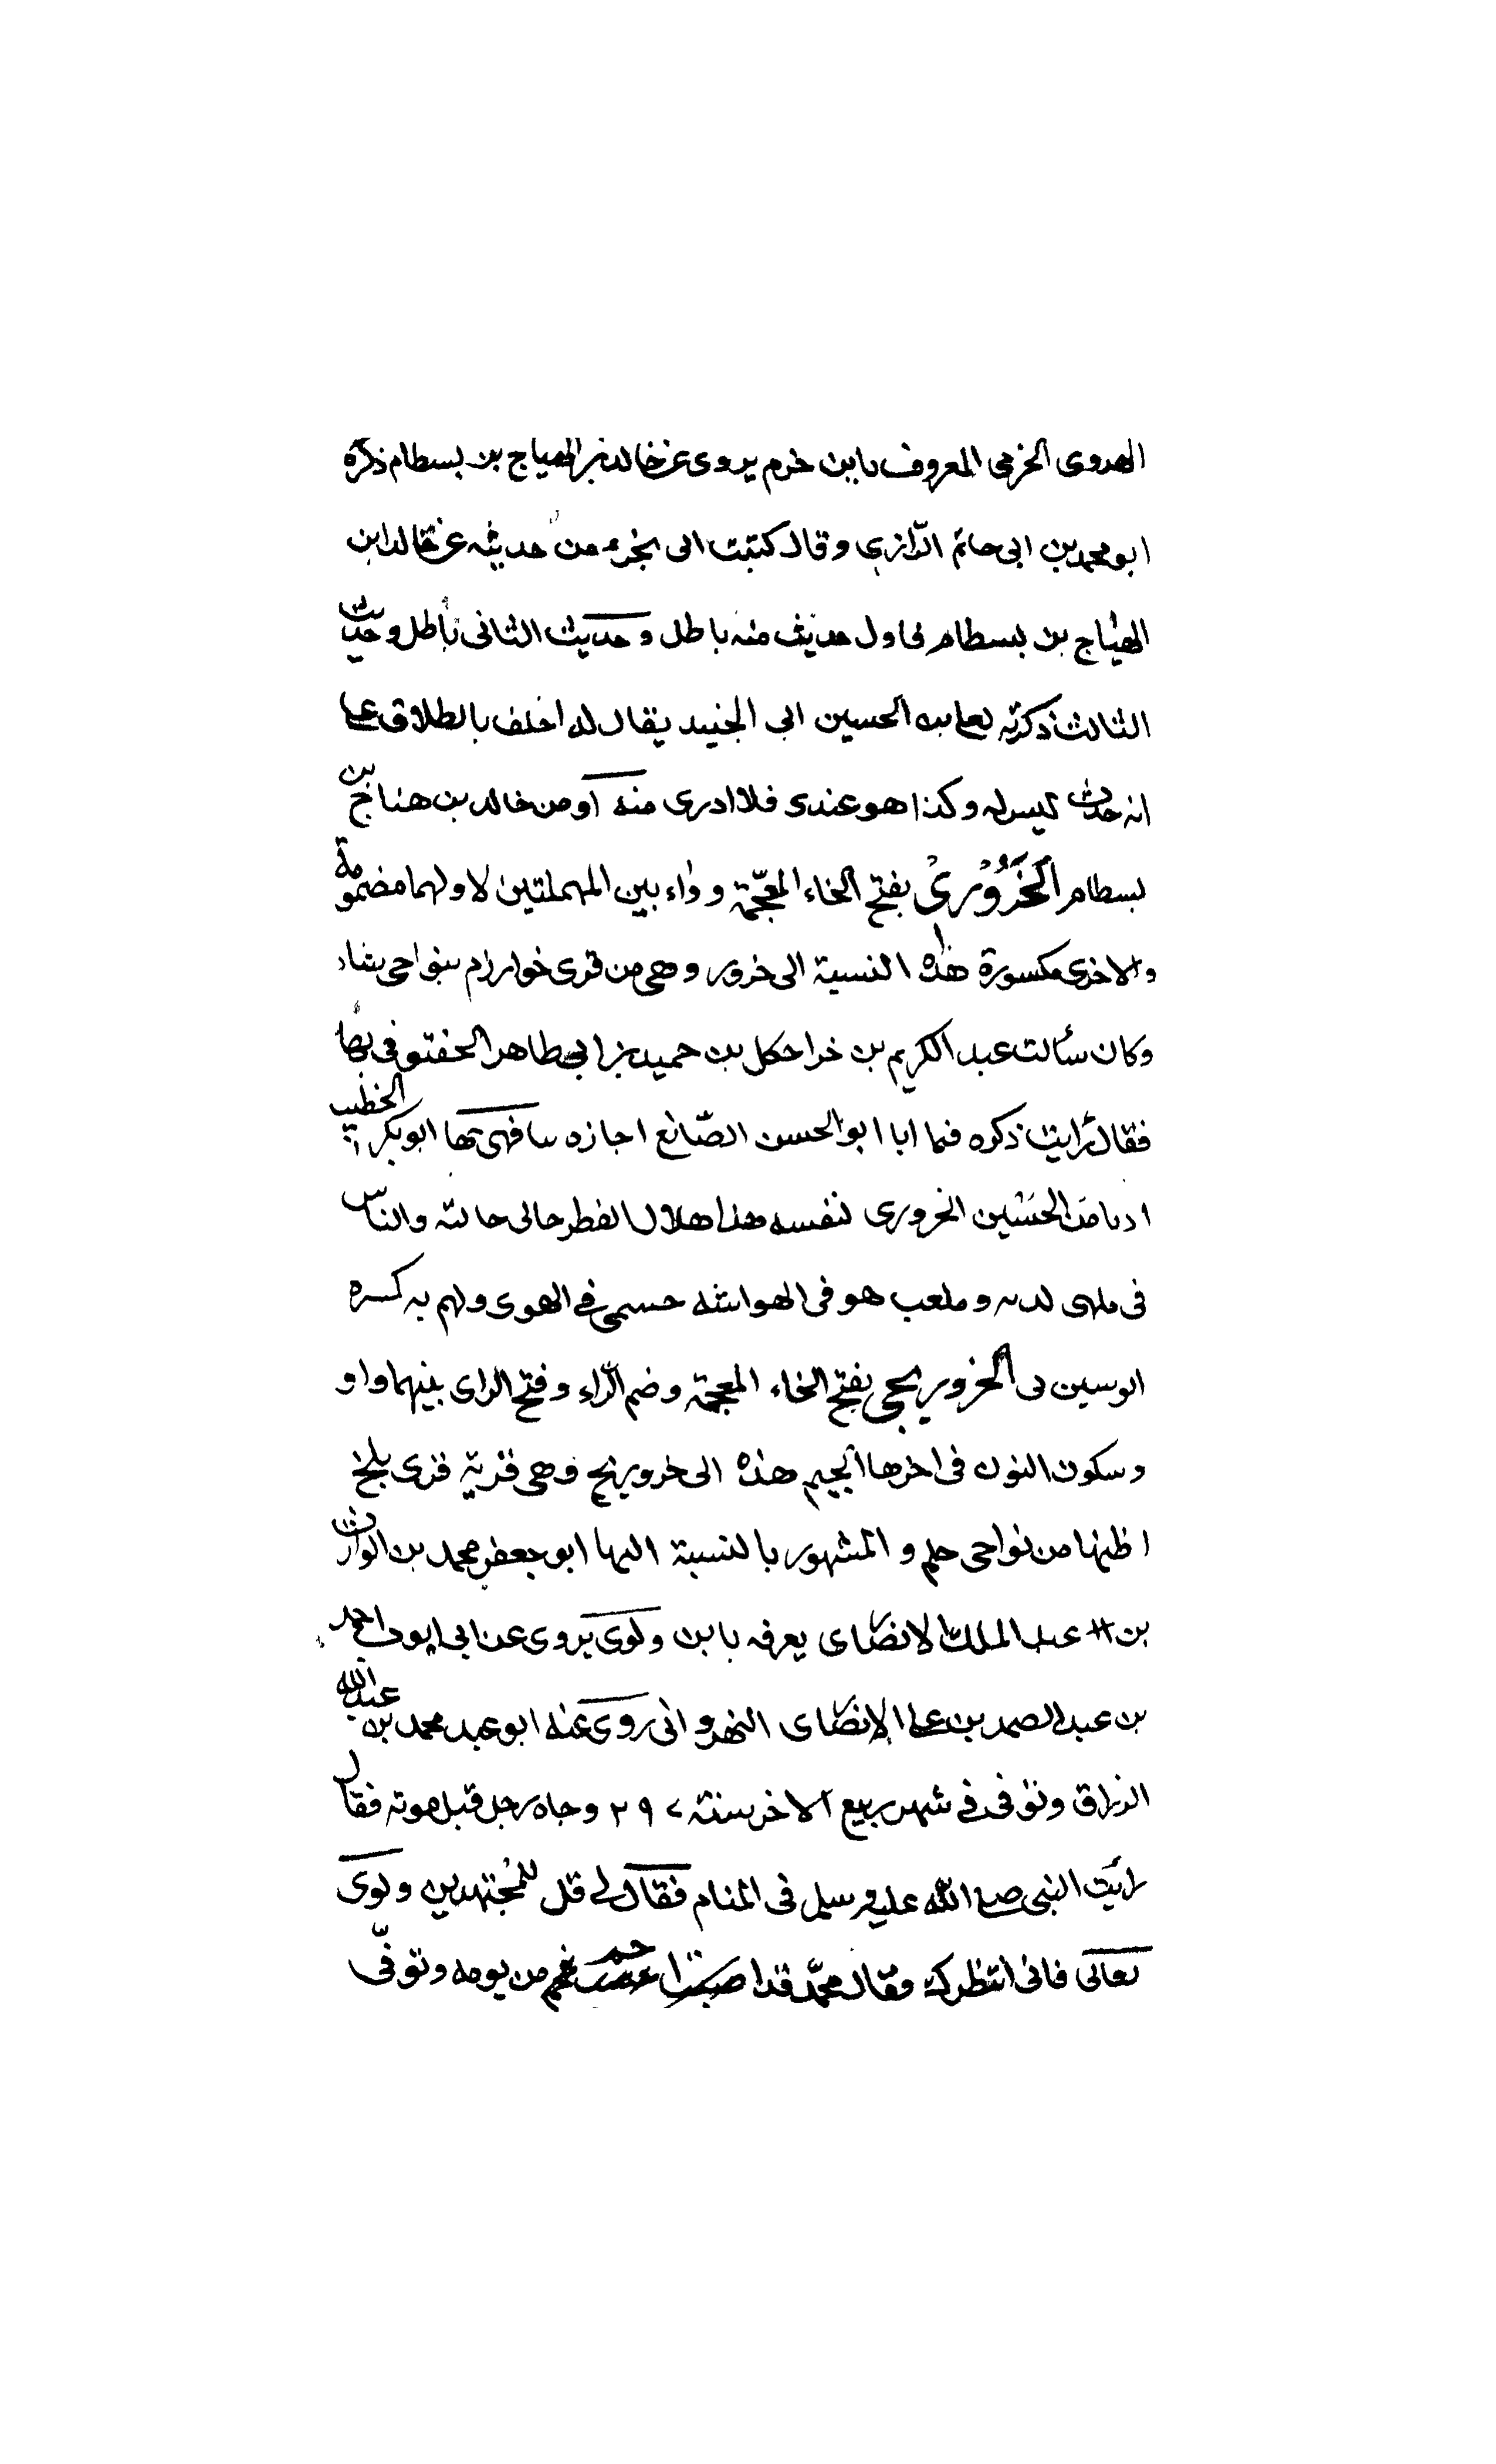 الهروى الخرمى المعروف بابن خرم يروى عن خالد بن الهياج بن بسطام ذكره
ابو محمد بن ابى حاتم الرّازى وقال كتبت الى بجزء من حديثه عن خالد ابن
الهياج بن بسطام فاول حديث منه باطل وحديث الثانى باطل وحديث
الثالث ذكرته لعلى بن الحسين ابى الجنيد يقال له احلف بالطلاق
انه حدث ليس له وكذا هو عندى فلا ادرى منه او من خالد بن هناج بن
بسطام الخَرُوْرىْ بفتح الخاء المعجّمة وواء بين المهملتين لاولهما مضمومة
والاخرى مكسورة هذه النسبة الى خرور وهى من قرى خوارزم بنواحى
وكان سألت عبد الكريم بن خراحكل بن حميد بن ابى طاهر
فقال رايت ذكره فيما ابو الحسن الصّانع اجازه ابو بكر الخطيب
الخرورى لنفسه هذا هلال الفطر حالى حالته والناس
فى ملهى لديه وملعب هو فى الهواء جسمى فى الهوى ولهم به
الخرورنجى بفتح الخاء المعجمة وضم الرّاء وفتح الزاى بينهما واو
وسكون النون فى اخرها الجيم هذه الى خرورنج وهى قرية قرى بلخ
اظنها من نواحى حلم والمشهور بالنسبة اليها ابو جعفر محمد بن الوارث
بن عبد الملك الانصارى يعرف بابن ولوى يروى عن ابى ايوب احمد
بن عبد الصمد بن على الانصارى النهروانى روى عنه ابو عبد محمد بن عبد الله
الزراق وتوفى فى شهر ربيع الاخر سنة ٢٩٧ وجاه رجل قبل موته فقال
رايت النبى صلى الله عليه وسلم فى المنام فقال لى قل للمجتهدين ولوى
تعالى فانى انتظرك وقال محمّد قد من يومه وتوفّى